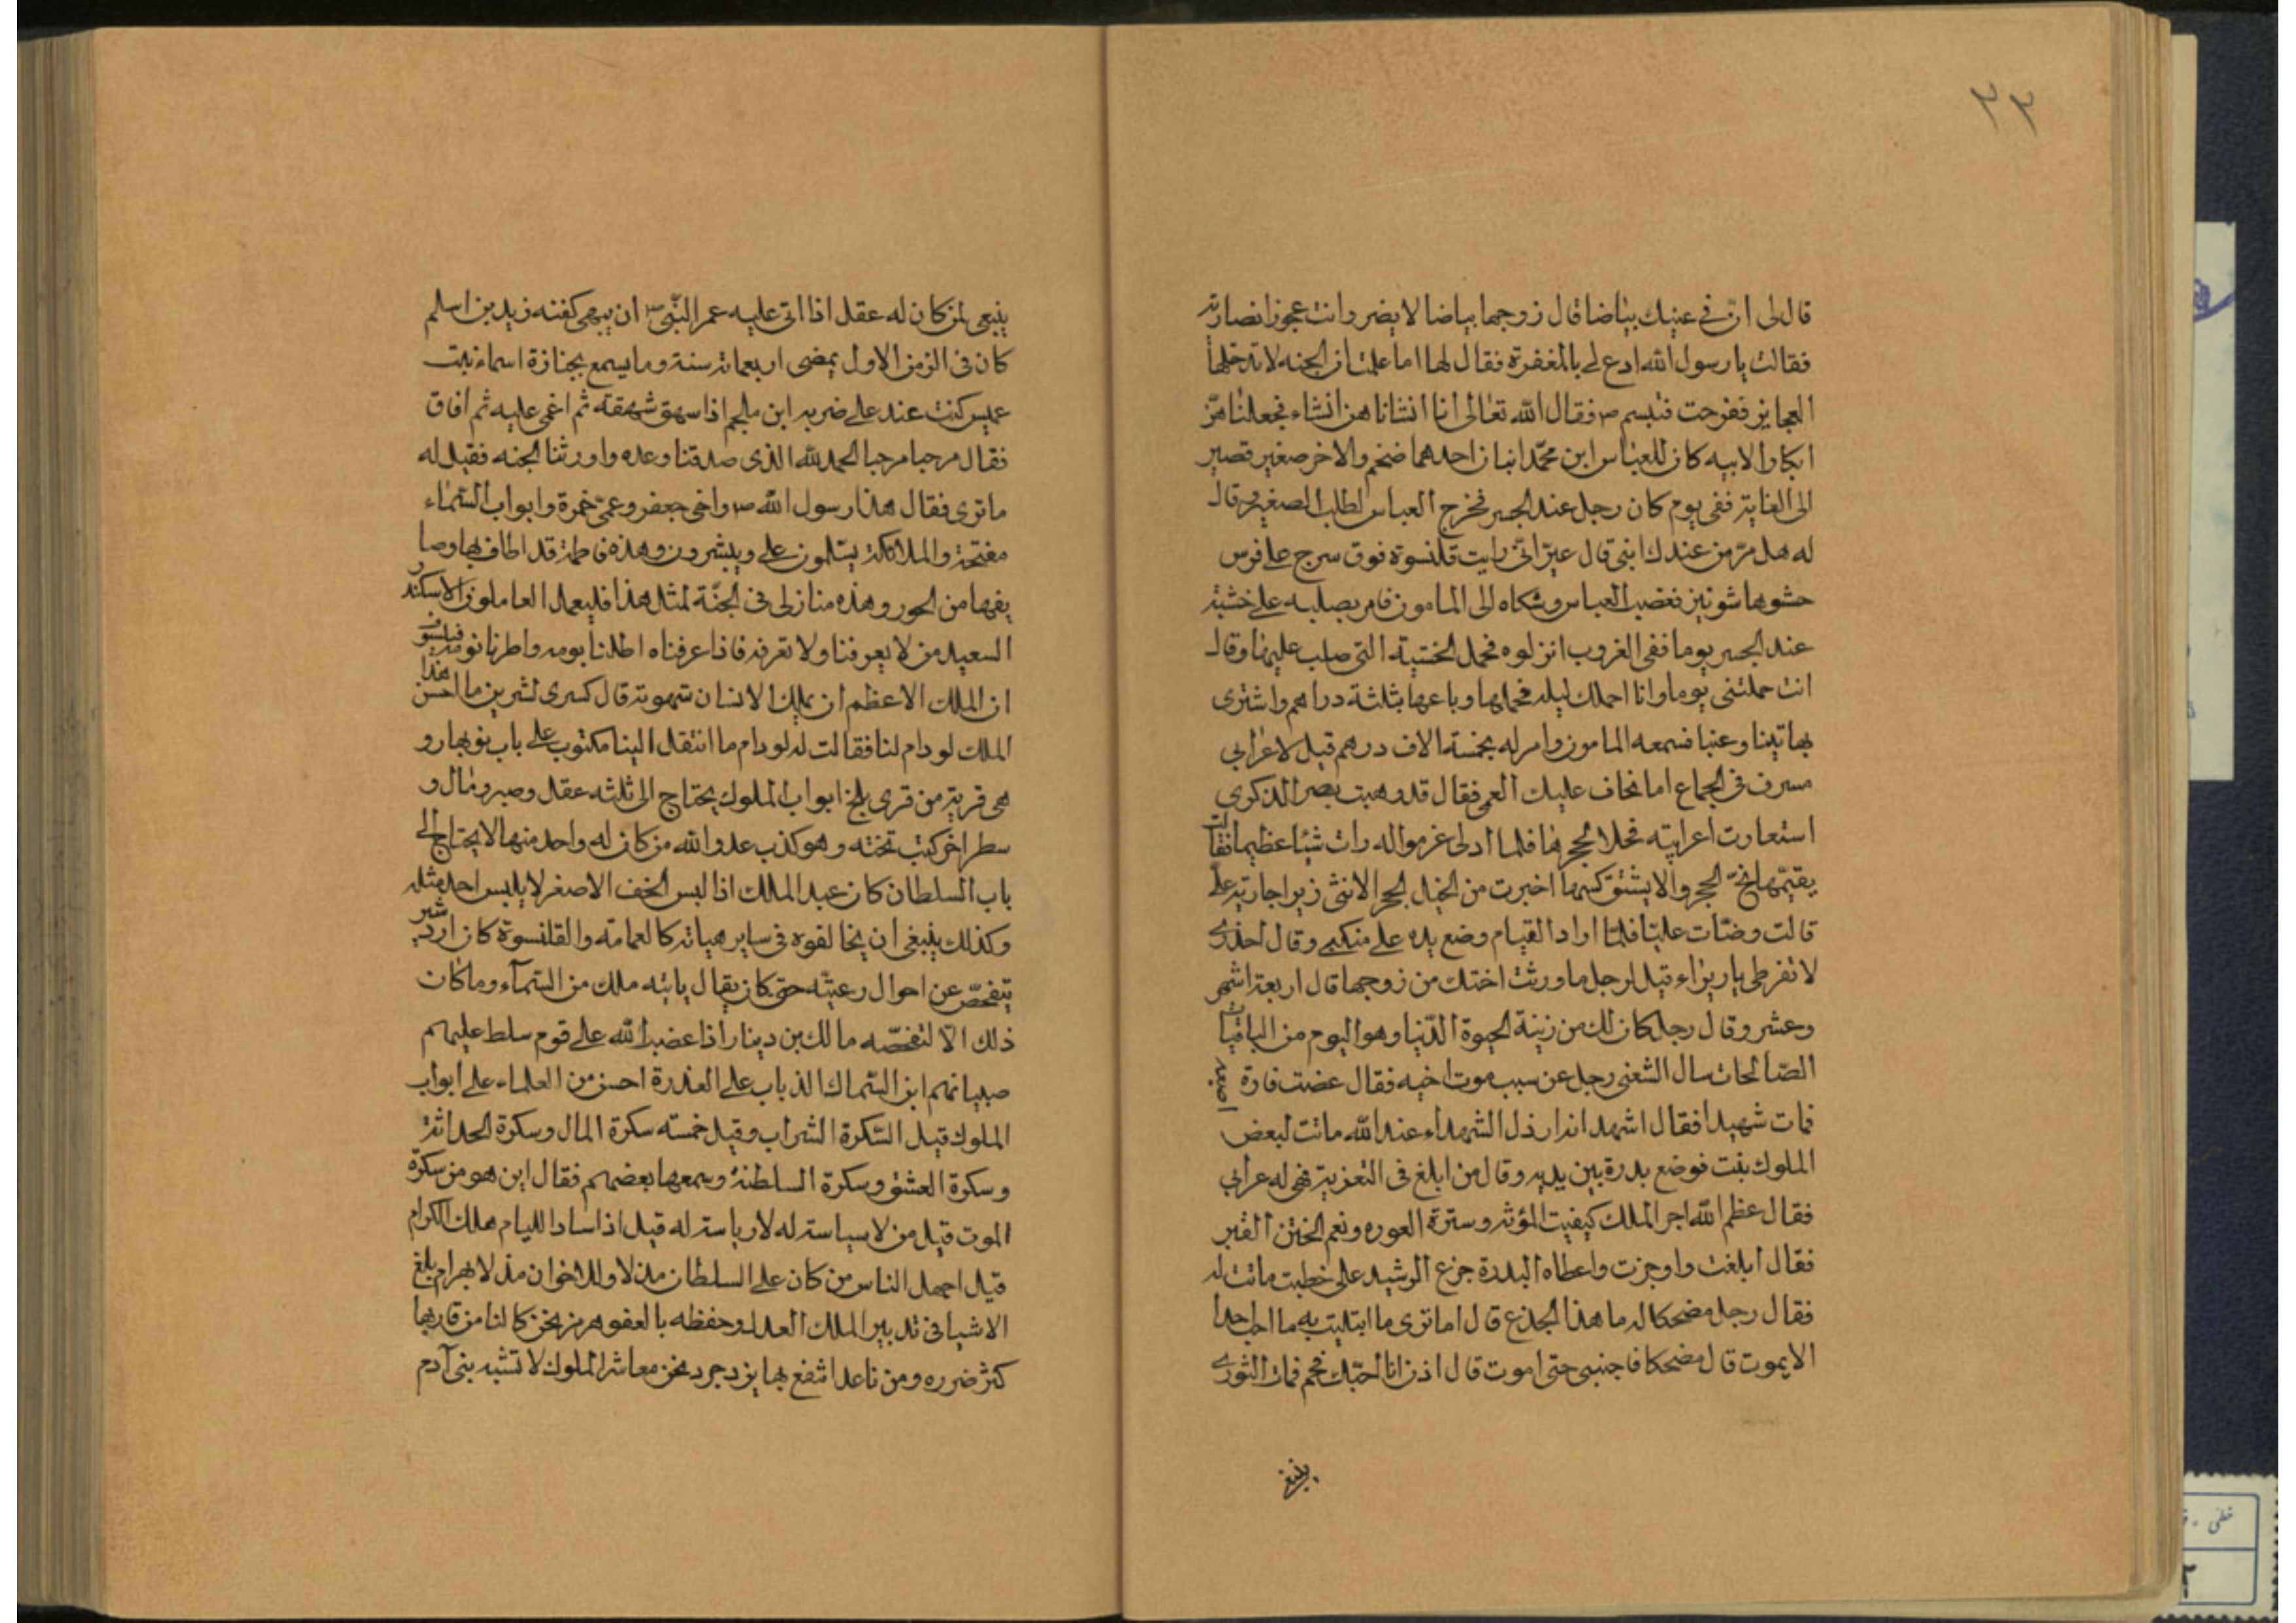 ٣٣
قال لى ان فى عينيك بياضا قال زوجها بياضا لا يضر وانت عجوز انصارية
فقالت يا رسول الله ادع لى بالمغفرة فقال لها اما علمت ان الجنه لا تدخلها
العجايز ففزحت فتبسم ص فقال الله تعالى انا انشاناهن انشاء فجعلناهن
ابكارا الابيه كان للعباس ابن محمد ابنان احدهما ضخم والاخر صغير قصير
الى الغاية ففى يوم كان رجل عند الجسر فخرج العباس لطلب الصغير وقال
له هل مر من عندك ابنى قال عير انى رايت قلنسوة فوق سرج على فرس
حشوها شونيز فغضب العباس وشكاه الى المامون فامر بصلبه على خشبة
عند الجسر يوما ففى الغروب انزلوه فحمل الخشبة التى صلب عليها وقال
انت حملتنى يوما وانا احملك ليله فحملها وباعها بثلثة دراهم واشترى
بها تينا وعنبا فسمعه المامون وامر له بخمسة الاف درهم قيل لاعرابي
مسرف فى الجماع اما تخاف عليك العمى فقال قد وهبت بصر الذكرى
استعارت اعرابية فحلا لحجرها فلما ادلى غرموله رات شيئا عظيما فقالت
قالت وضئات عليتا فلما اراد القيام وضع يده على منكبى وقال احذرى
لا تفرطى يا ريزاء قيل لرجل ما ورثت اختك من زوجها قال اربعة اشهر
وعشر وقال رجل كان لك من زينة الحيوة الدنيا وهو اليوم من الباقيات
الصالحات سال الشعبى رجل عن سبب موت اخيه فقال عضت فارة اصبعه
فمات شهيدا فقال اشهد انه ارذل الشهداء عند الله ماتت لبعض
الملوك بنت فوضع بدرة بين يديه وقال من ابلغ فى التعزية فهى له عرابي
فقال عظم الله اجر الملك كيفيت المؤنه وسترة العوره ونعم الختن القبر
فقال ابلغت واوجزت واعطاه البدرة جزع الرشيد على خطبت ماتت له
فقال رجل مضحكا له ما هذا الجذع قال اما ترى ما ابتليت به ما احب احدا
الا يموت قال مضحكا فاجنبى حتى اموت قال اذن انا احبك فحم فمات الثورى
ينبغى
ينبغى لمن كان له عقل اذا اتى عليه عمر النبى ص ان يهيى كفنه زيد بن اسلم
كان فى الزمن الاول يمضى اربعمائة سنة وما يسمع بجنازة اسماء بنت
عميس كنت عند على ضربه ابن ملجم اذا سهق شهقة ثم اغمى عليه ثم افاق
فقال مرحبا مرحبا الحمد لله الذى صدقنا وعده واورثنا الجنه فقيل له
ما ترى فقال هذا رسول الله ص واخى جعفر وعمى حمزة وابواب السماء
مفتحة والملائكة يسلمون على ويبشرون وهذه فاطمة قد اطاف بها وصا
يفها من الحور وهذه منازلى فى الجنة لمثل هذا فليعمل العاملون الاسكندر
السعيد من لا يعرفنا ولا نعرفه فاذا عرفناه اطلنا يومه واطرنا نومه فيلسوف
ان الملك الاعظم ان يملك الانسان شهوته قال كسرى لشيرين ما احسن هذا
الملك لو دام لنا فقالت له لو دام ما انتقل الينا مكتوب على باب نوبهار و
هى قرية من قرى بلخ ابواب الملوك يحتاج الى ثلثه عقل وصبر ومال و
سطر اخر كتب تحته وهو كذب عدو الله من كان له واحد منها لا يحتاج الى
باب السلطان كان عبد الملك اذا لبس الخف الاصفر لا يلبس احد مثله
وكذلك ينبغى ان يخالفوه فى ساير هيأته كالعمامة والقلنسوة كان اردشير
يتفحص عن احوال رعيته حتى كان يقال ياتيه ملك من السمآء وما كان
ذلك الا لتفحصه مالك بن دينار اذا غضب الله على قوم سلط عليهم
صبيانهم ابن السماك الذباب على العذرة احسن من العلماء على ابواب
الملوك قيل السكرة الشراب وقيل خمسه سكرة المال وسكرة الحداثة
وسكرة العشق وسكرة السلطنة وسمعها بعضهم فقال اين هو من سكرة
الموت قيل من لا سياسة له لا رياسة له قيل اذا ساد اللئام هلك الكرام
قيل اجهل الناس من كان على السلطان مدلا وللاخوان مذلا بهرام بلغ
الاشيا فى تدبير الملك العدل وحفظه بالعفو هرمز نحن كالنا من قاربها
كثر ضرره ومن تاعدا نتفع بها يزدجرد نحن معاشر الملوك لا تشبه بنى آدم